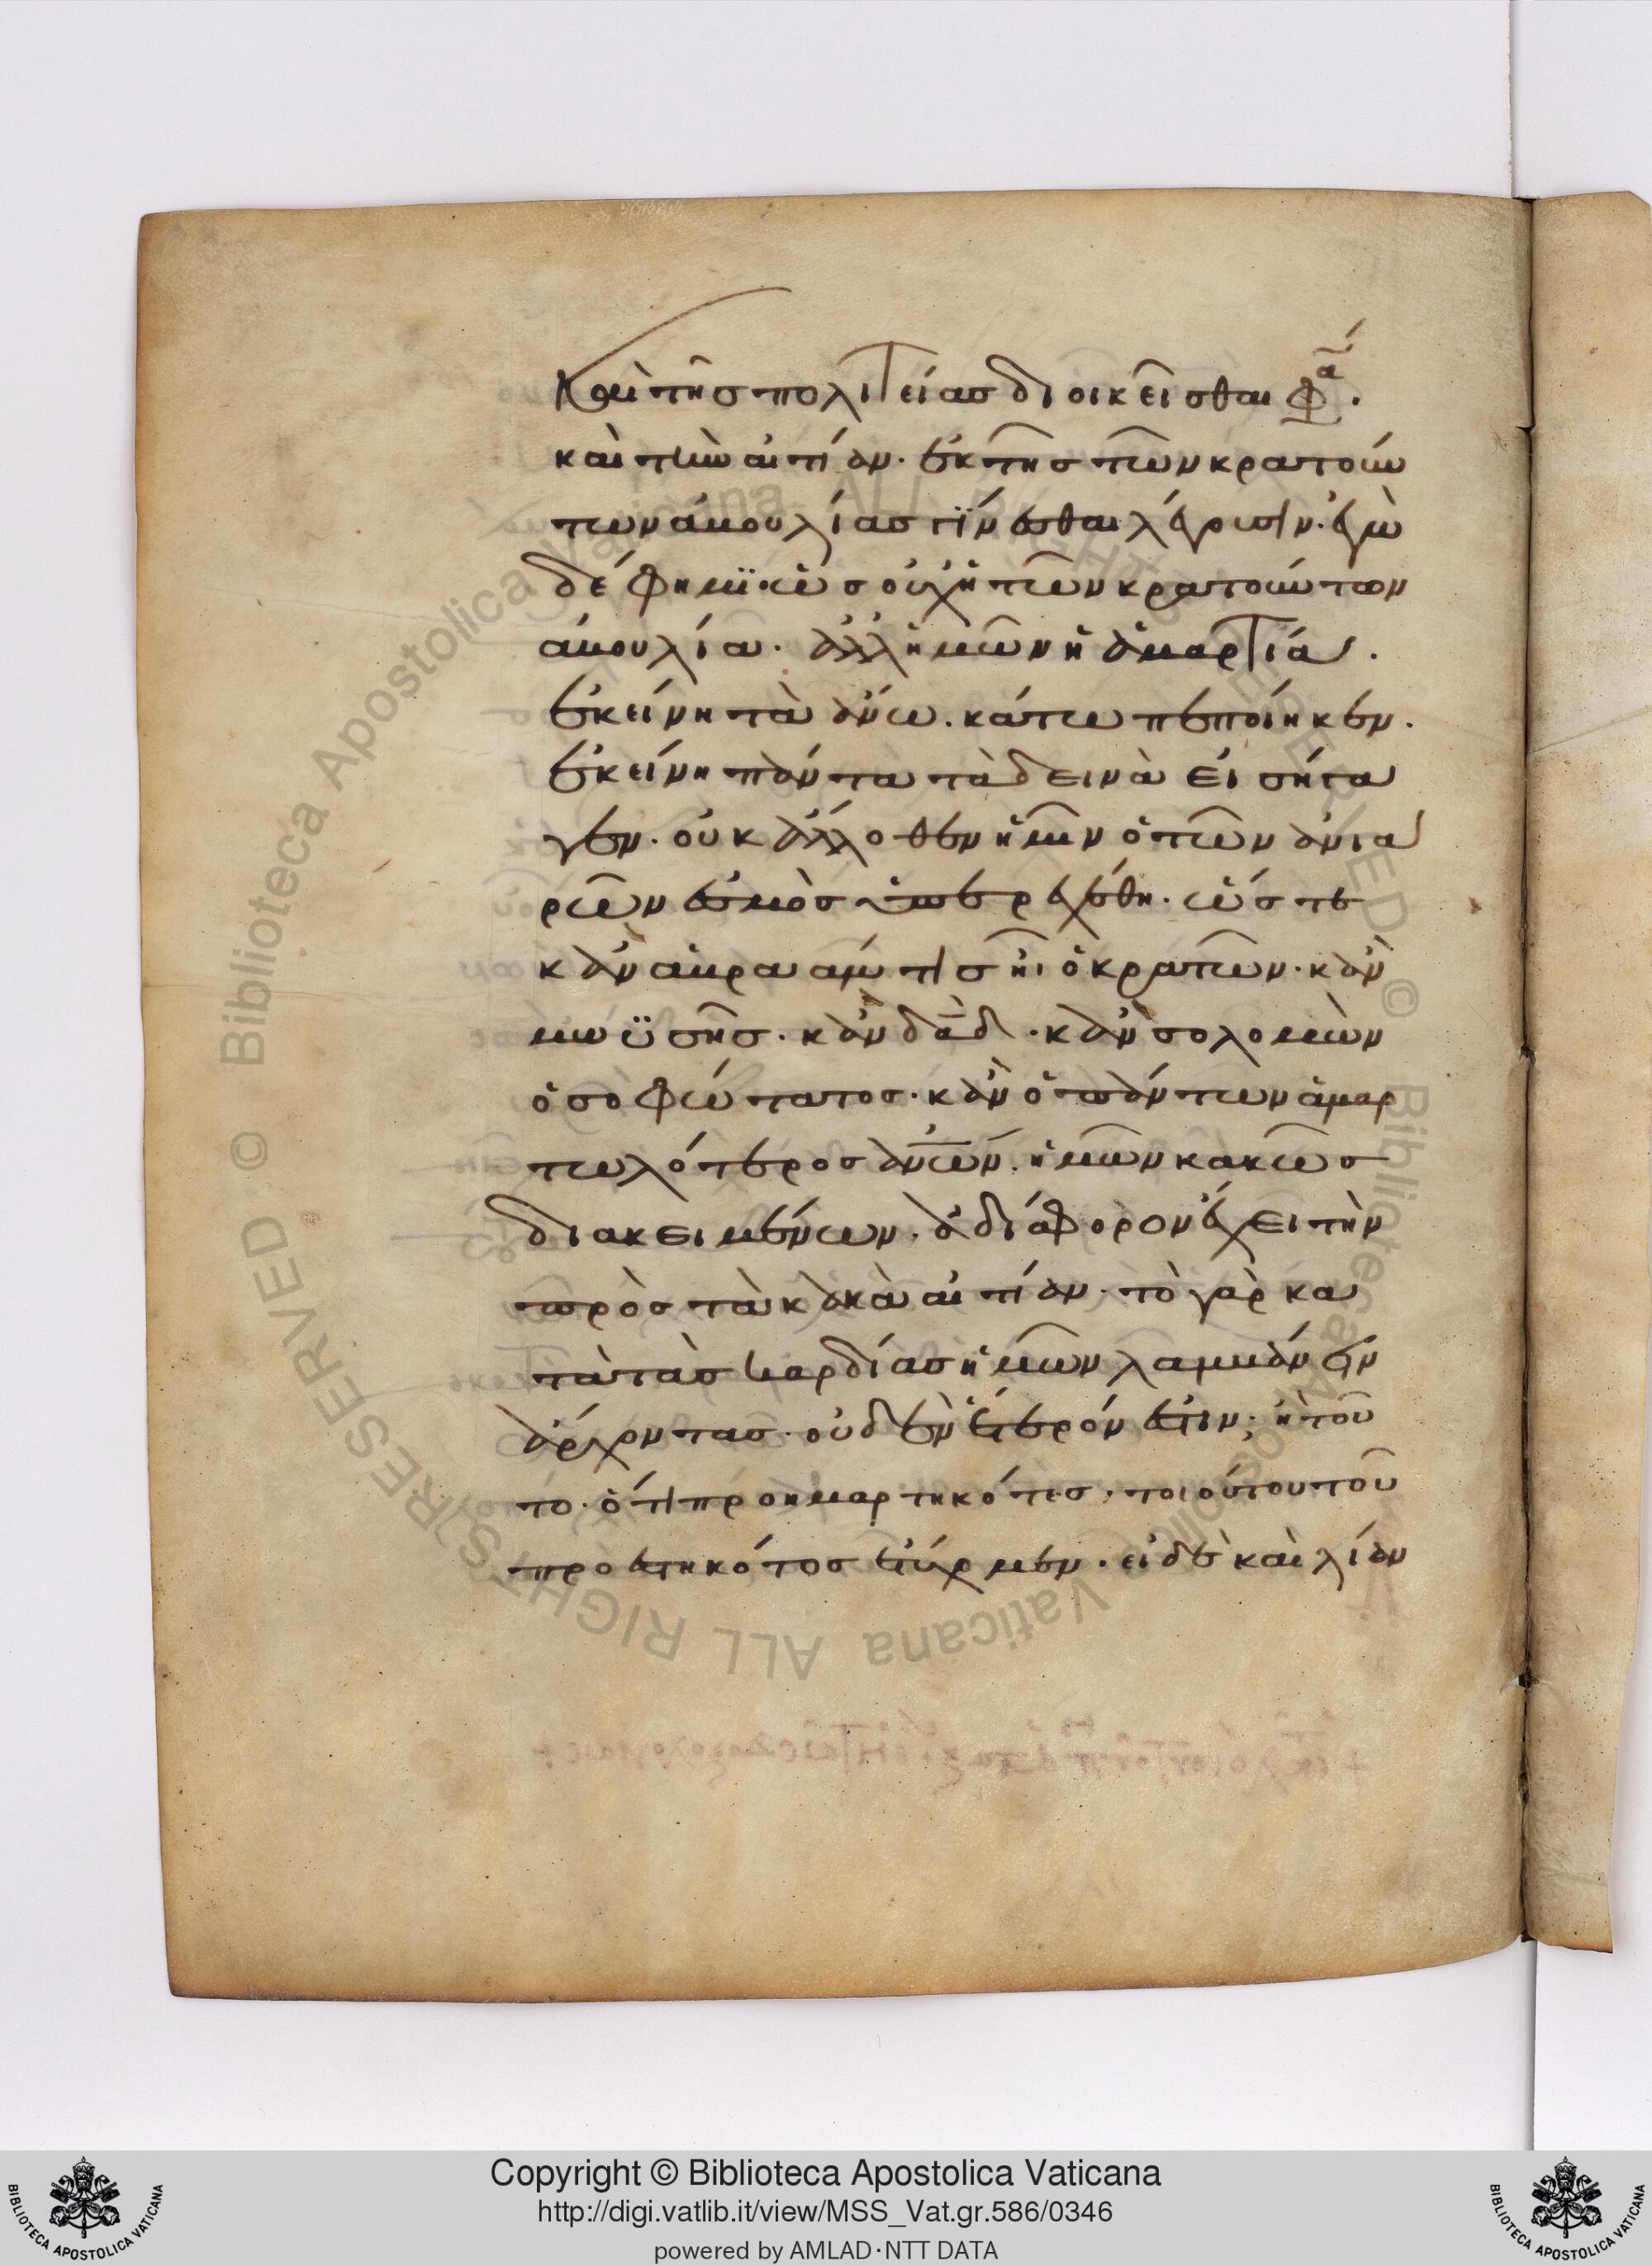 καὶ τῆς πολιτείας διοικεῖσθαι φα.
καὶ τὴν αἰτίαν. ἐκ τῆς τῶν κρατούν
των ἀβουλίας γίνεσθαι λέγουσιν. ἐγὼ
δέ φημι. ὡς οὐχ ἡ τῶν κρατούντων
ἀβουλία. ἀλλ ἡμῶν ἡ ἁμαρτία.
ἐκείνη τὰ ἄνω. κάτω πεποίηκεν.
ἐκείνη πάντα τὰ δεινὰ εἰσήγα
γεν. οὐκ ἄλλοθεν ἡμῖν ὁ τῶν ἀνια
ρῶν ἐσμὸς ὑπερεχέθη. ὥστε
κἂν αβραάμ τις ῆι ὁ κρατῶν. κἂν
μωϋσῆς. κἂν δαδ. κἂν σολομὼν
ὁ σοφώτατος. κἂν ὁ πάντων ἁμαρ
τωλότερος ἀνων. ἡμῶν κακῶς
διακειμένων. ἀδιάφορον ἔχει τὴν
πρὸς τὰ κακὰ αἰτίαν. τὸ γὰρ κα
τὰ τὰς καρδίας ἡμῶν λαμβάνειν
ἄρχοντας. οὐδὲν ἕτερόν ἐστιν; ἢ τοῦ
το. ὅτι προημαρτηκότες, τοιούτου τοῦ
προεστηκότος ἐτύχομεν. εἰ δὲ καὶ λίαν
Copyright © Biblioteca Apostolica Vaticana
http://digi.vatlib.it/view/MSS_Vat.gr.586/0346
powered by AMLAD·NTT DATA
BIBLIOTECA APOSTOLICA VATICANA
BIBLIOTECA APOSTOLICA VATICANA
Biblioteca Apostolica Vaticana ALL RIGHTS RESERVED ©
Biblioteca Apostolica Vaticana ALL RIGHTS RESERVED ©